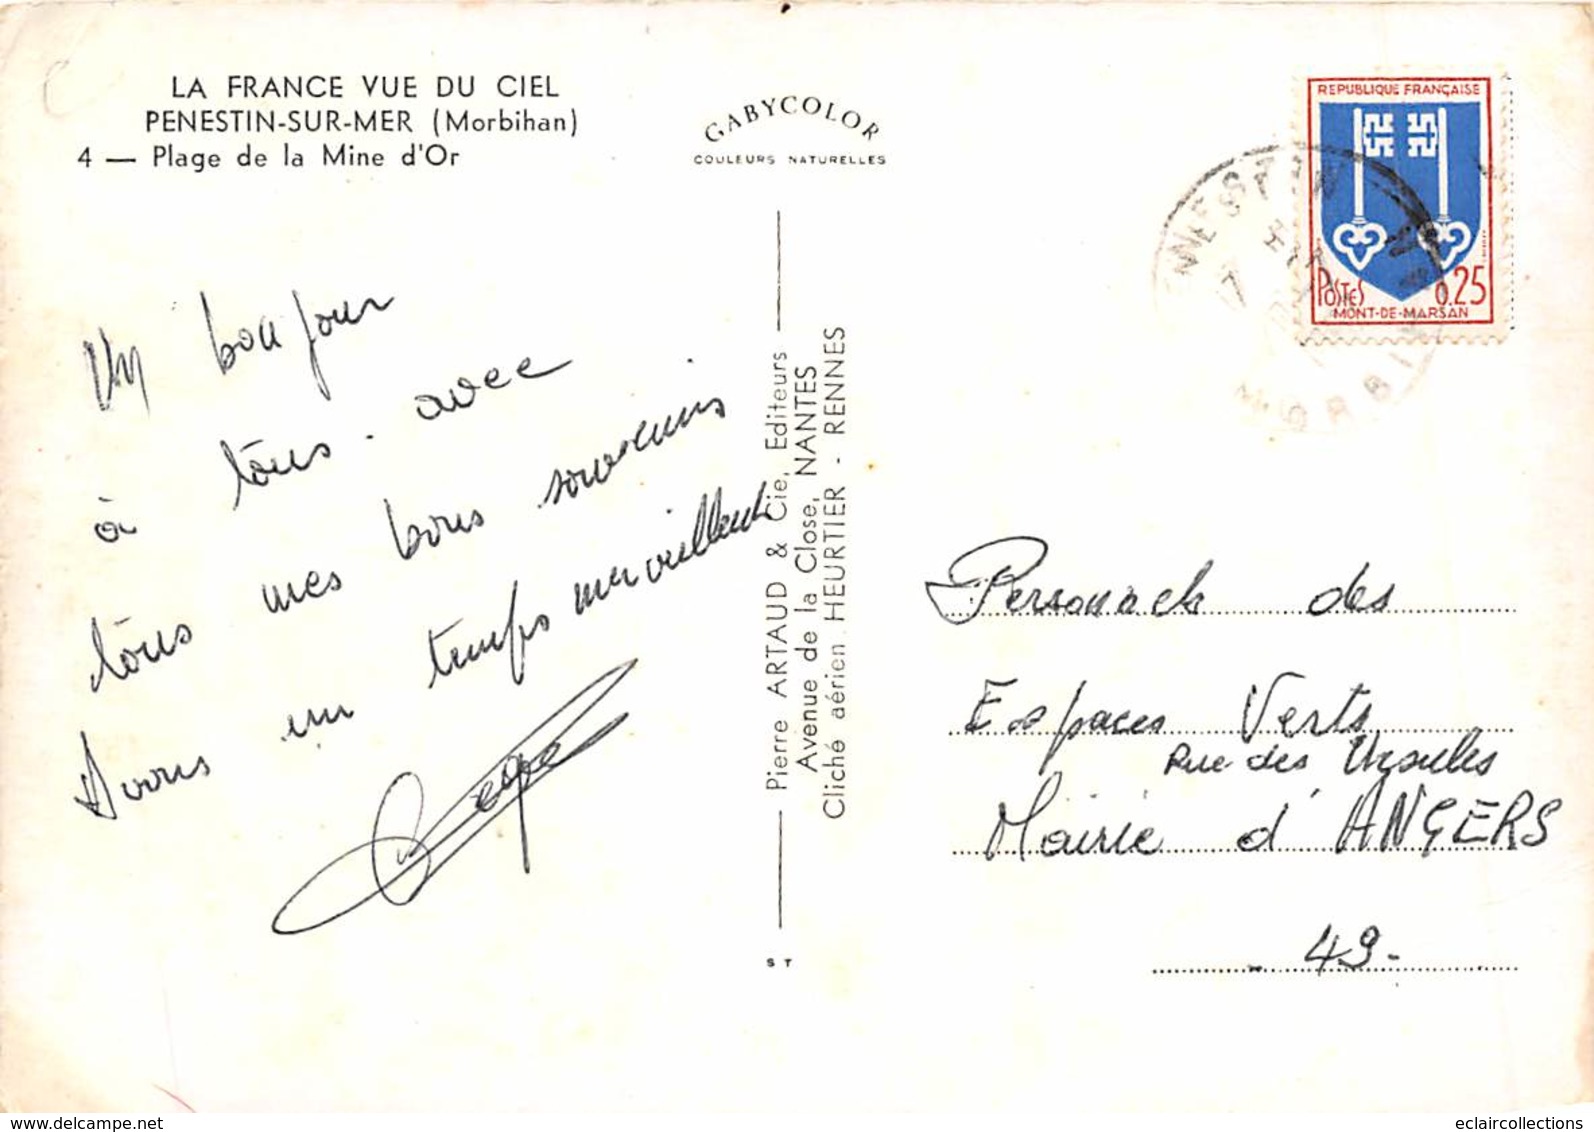 LA FRANCE VUE DU CIEL
PENESTIN-SUR-MER (Morbihan)
4 — Plage de la Mine d'Or
GABYCOLOR
COULEURS NATURELLES
REPUBLIQUE FRANÇAISE
POSTES 0.25
MONT-DE-MARSAN
Un bonjour
à tous. avec
tous mes bons souvenirs
Avons un temps merveilleux
Pierre ARTAUD & Cie, Editeurs
Avenue de la Close, NANTES
Cliché aérien HEURTIER - RENNES
S T
Personnels des
Espaces Verts
Rue des Ursules
Mairie d'ANGERS
- 49 -
eclaircollections @ delcampe.net